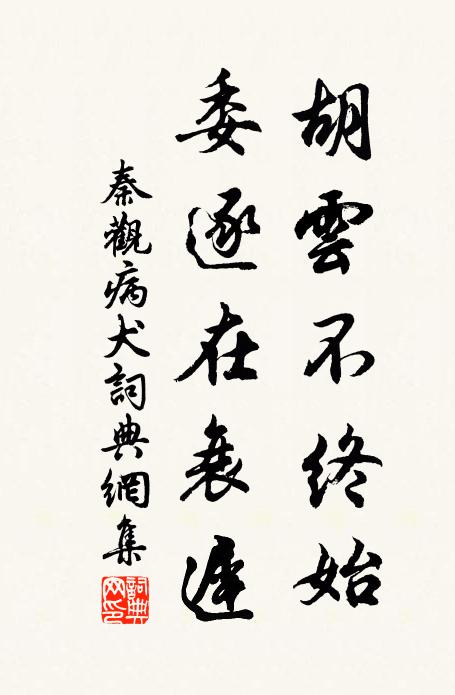 胡雲不終始
委逐在衰遲
秦觀病犬詞典網集
詞典網印